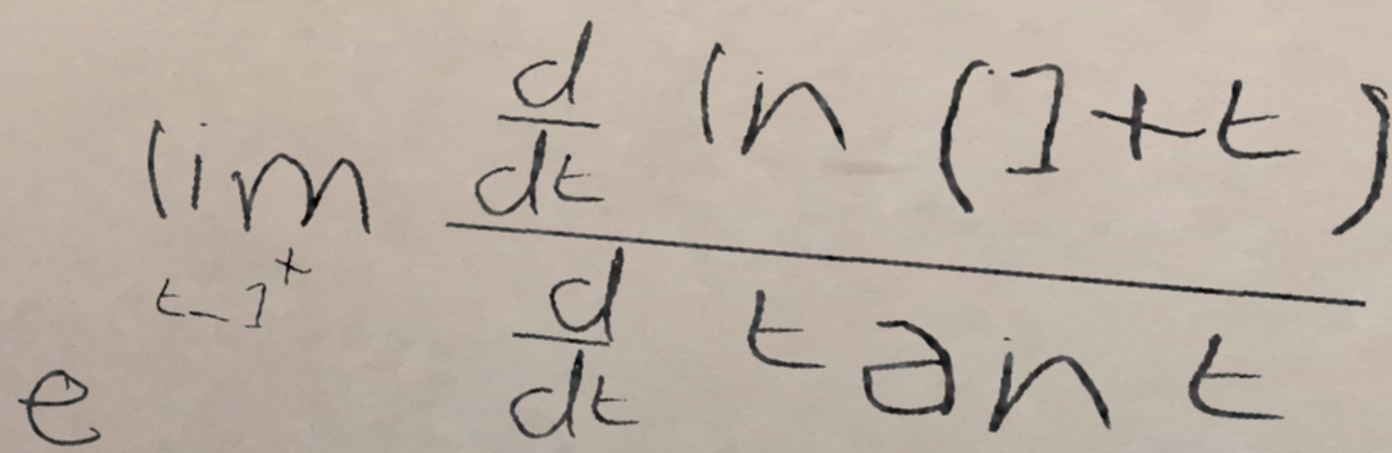 e^{\lim_{t \to 1^+} \frac{\frac{d}{dt} \ln (1+t)}{\frac{d}{dt} \tan t}}